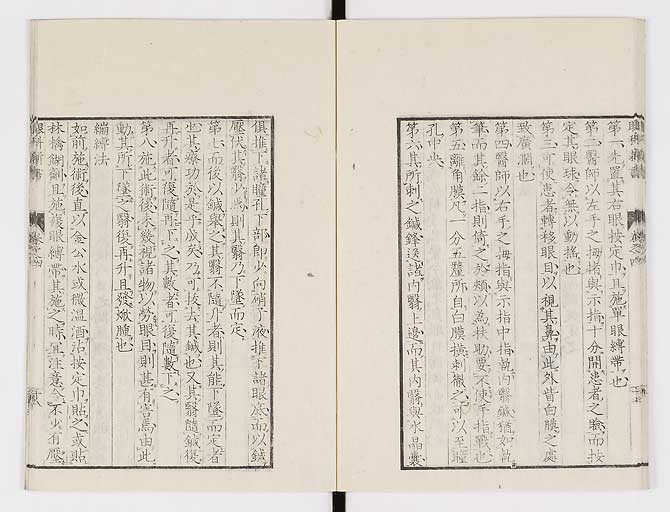 第一先置其右眼按定巾且施單眼縛帶也
第二醫師以左手之拇指與示指十分開患者之瞼而按
定其眼球令無以動搖也
第三可使患者轉移眼目以視其鼻由此外眥白膜之處
致廣濶也
第四醫師以右手之拇指與示指中指執內翳鍼猶如執
筆而其餘二指則倚之於頰以為扶助要不使手指戰也
第五離角膜凡一分五釐所自白膜橫刺徹之可以至瞳
孔中央
第六其所刺之鍼鋒送諸內翳上邊而其內翳與水晶囊
俱推下諸瞳孔下部即少向硝子液推下諸眼底而以鍼
壓伏其翳少焉則其翳乃下墜而定
第七而後以鍼舉之其翳不隨升者則其能下墜而定者
也其療功於是乎成矣乃可拔去其鍼也又其翳隨鍼復
再升者可復隨再下之其數者可復隨數下之
第八施此術後未幾視諸物以勞眼目則甚有害焉由此
動其所下墜之翳復再升且發焮腫也
繃縛法
如前施術後直以金公水或微溫酒沾按定巾貼之或貼
林檎餬劑且施複眼縛帶其施之際宜注意令不少有壓
眼科新書